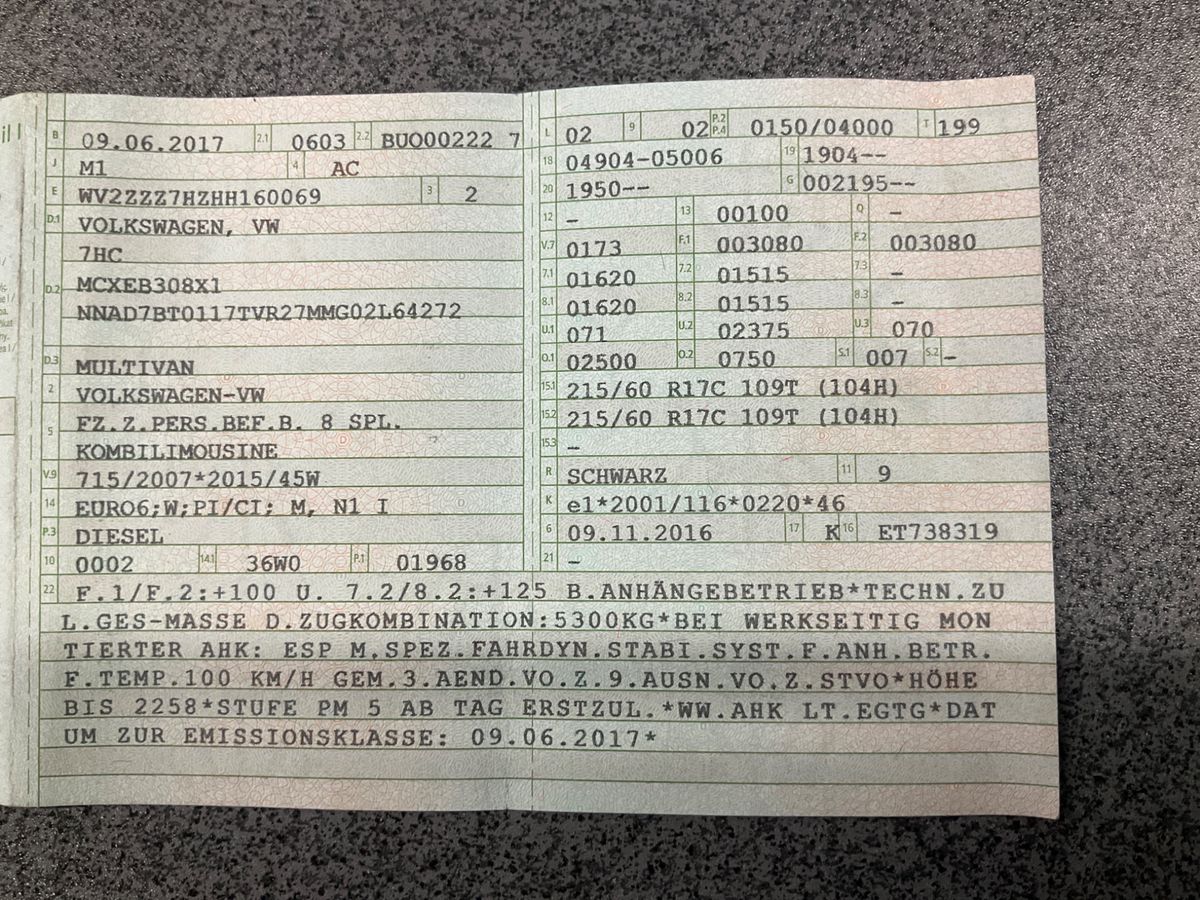 il I
B 09.06.2017 2.1 0603 2.2 BUO00222 7
J M1 4 AC
E WV2ZZZ7HZHH160069 3 2
D.1 VOLKSWAGEN, VW
7HC
D.2 MCXEB308X1
NNAD7BT0117TVR27MMG02L64272
D.3 MULTIVAN
2 VOLKSWAGEN-VW
5 FZ.Z.PERS.BEF.B. 8 SPL.
KOMBILIMOUSINE
V.9 715/2007*2015/45W
14 EURO6;W;PI/CI; M, N1 I
P.3 DIESEL
10 0002 14.1 36W0 P.1 01968
L 02 9 02 P.2 P.4 0150/04000 T 199
18 04904-05006 19 1904--
20 1950-- G 002195--
12 - 13 00100 Q -
V.7 0173 F.1 003080 F.2 003080
7.1 01620 7.2 01515 7.3 -
8.1 01620 8.2 01515 8.3 -
U.1 071 U.2 02375 U.3 070
O.1 02500 O.2 0750 S.1 007 S.2 -
15.1 215/60 R17C 109T (104H)
15.2 215/60 R17C 109T (104H)
15.3 -
R SCHWARZ 11 9
K e1*2001/116*0220*46
6 09.11.2016 17 K 16 ET738319
21 -
22 F.1/F.2:+100 U. 7.2/8.2:+125 B.ANHÄNGEBETRIEB*TECHN.ZU
L.GES-MASSE D.ZUGKOMBINATION:5300KG*BEI WERKSEITIG MON
TIERTER AHK: ESP M.SPEZ.FAHRDYN.STABI.SYST.F.ANH.BETR.
F.TEMP.100 KM/H GEM.3.AEND.VO.Z.9.AUSN.VO.Z.STVO*HÖHE
BIS 2258*STUFE PM 5 AB TAG ERSTZUL.*WW.AHK LT.EGTG*DAT
UM ZUR EMISSIONSKLASSE: 09.06.2017*